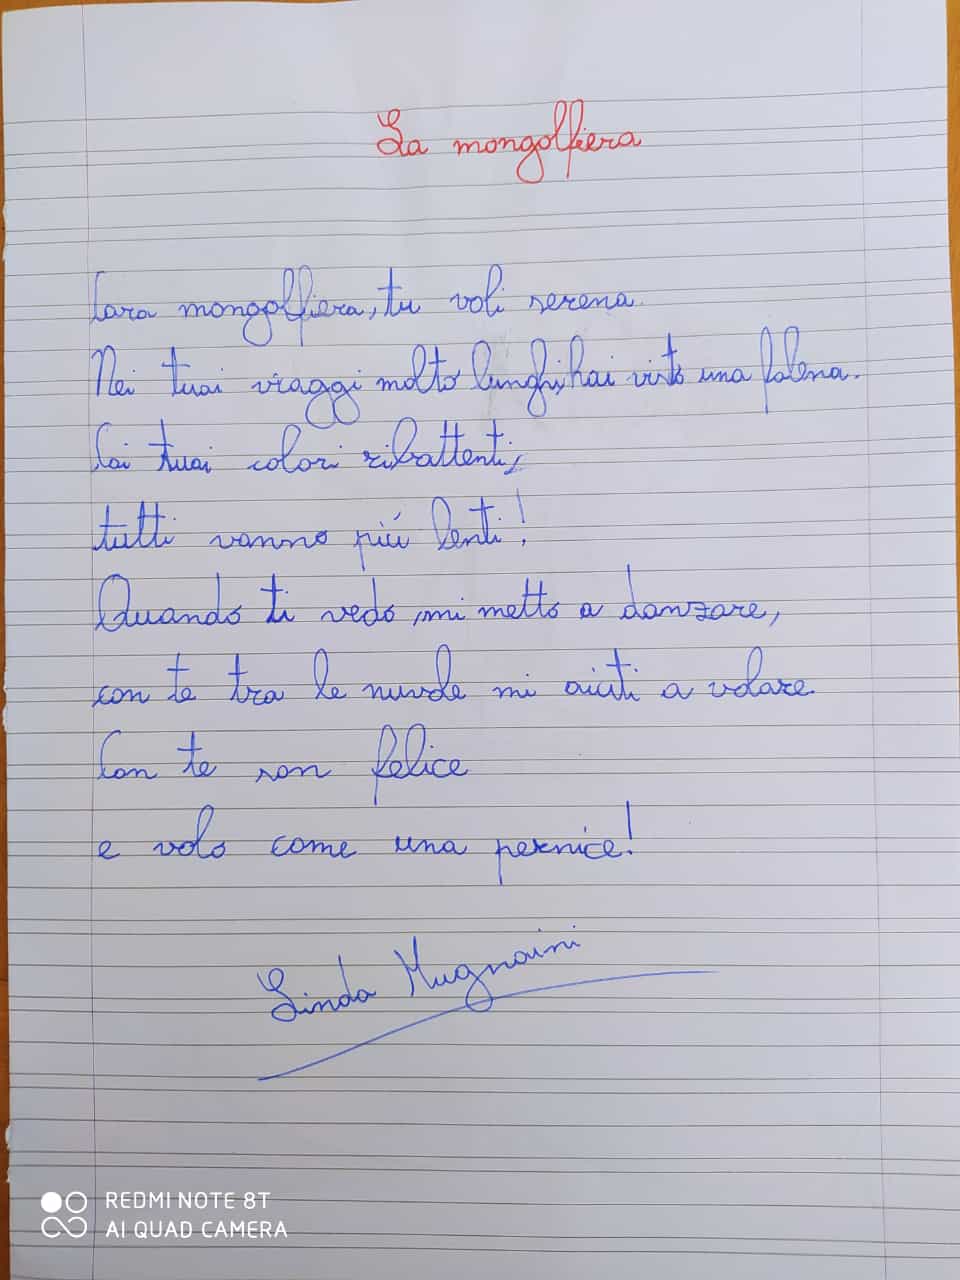 La mongolfiera
Cara mongolfiera, tu voli serena.
Nei tuoi viaggi molto lunghi, hai visto una falena.
Coi tuoi colori ribattenti,
tutti vanno più lenti!
Quando ti vedo, mi metto a danzare,
con te tra le nuvole mi aiuti a volare.
Con te son felice
e volo come una pernice!
Linda Mugnaini
REDMI NOTE 8T
AI QUAD CAMERA